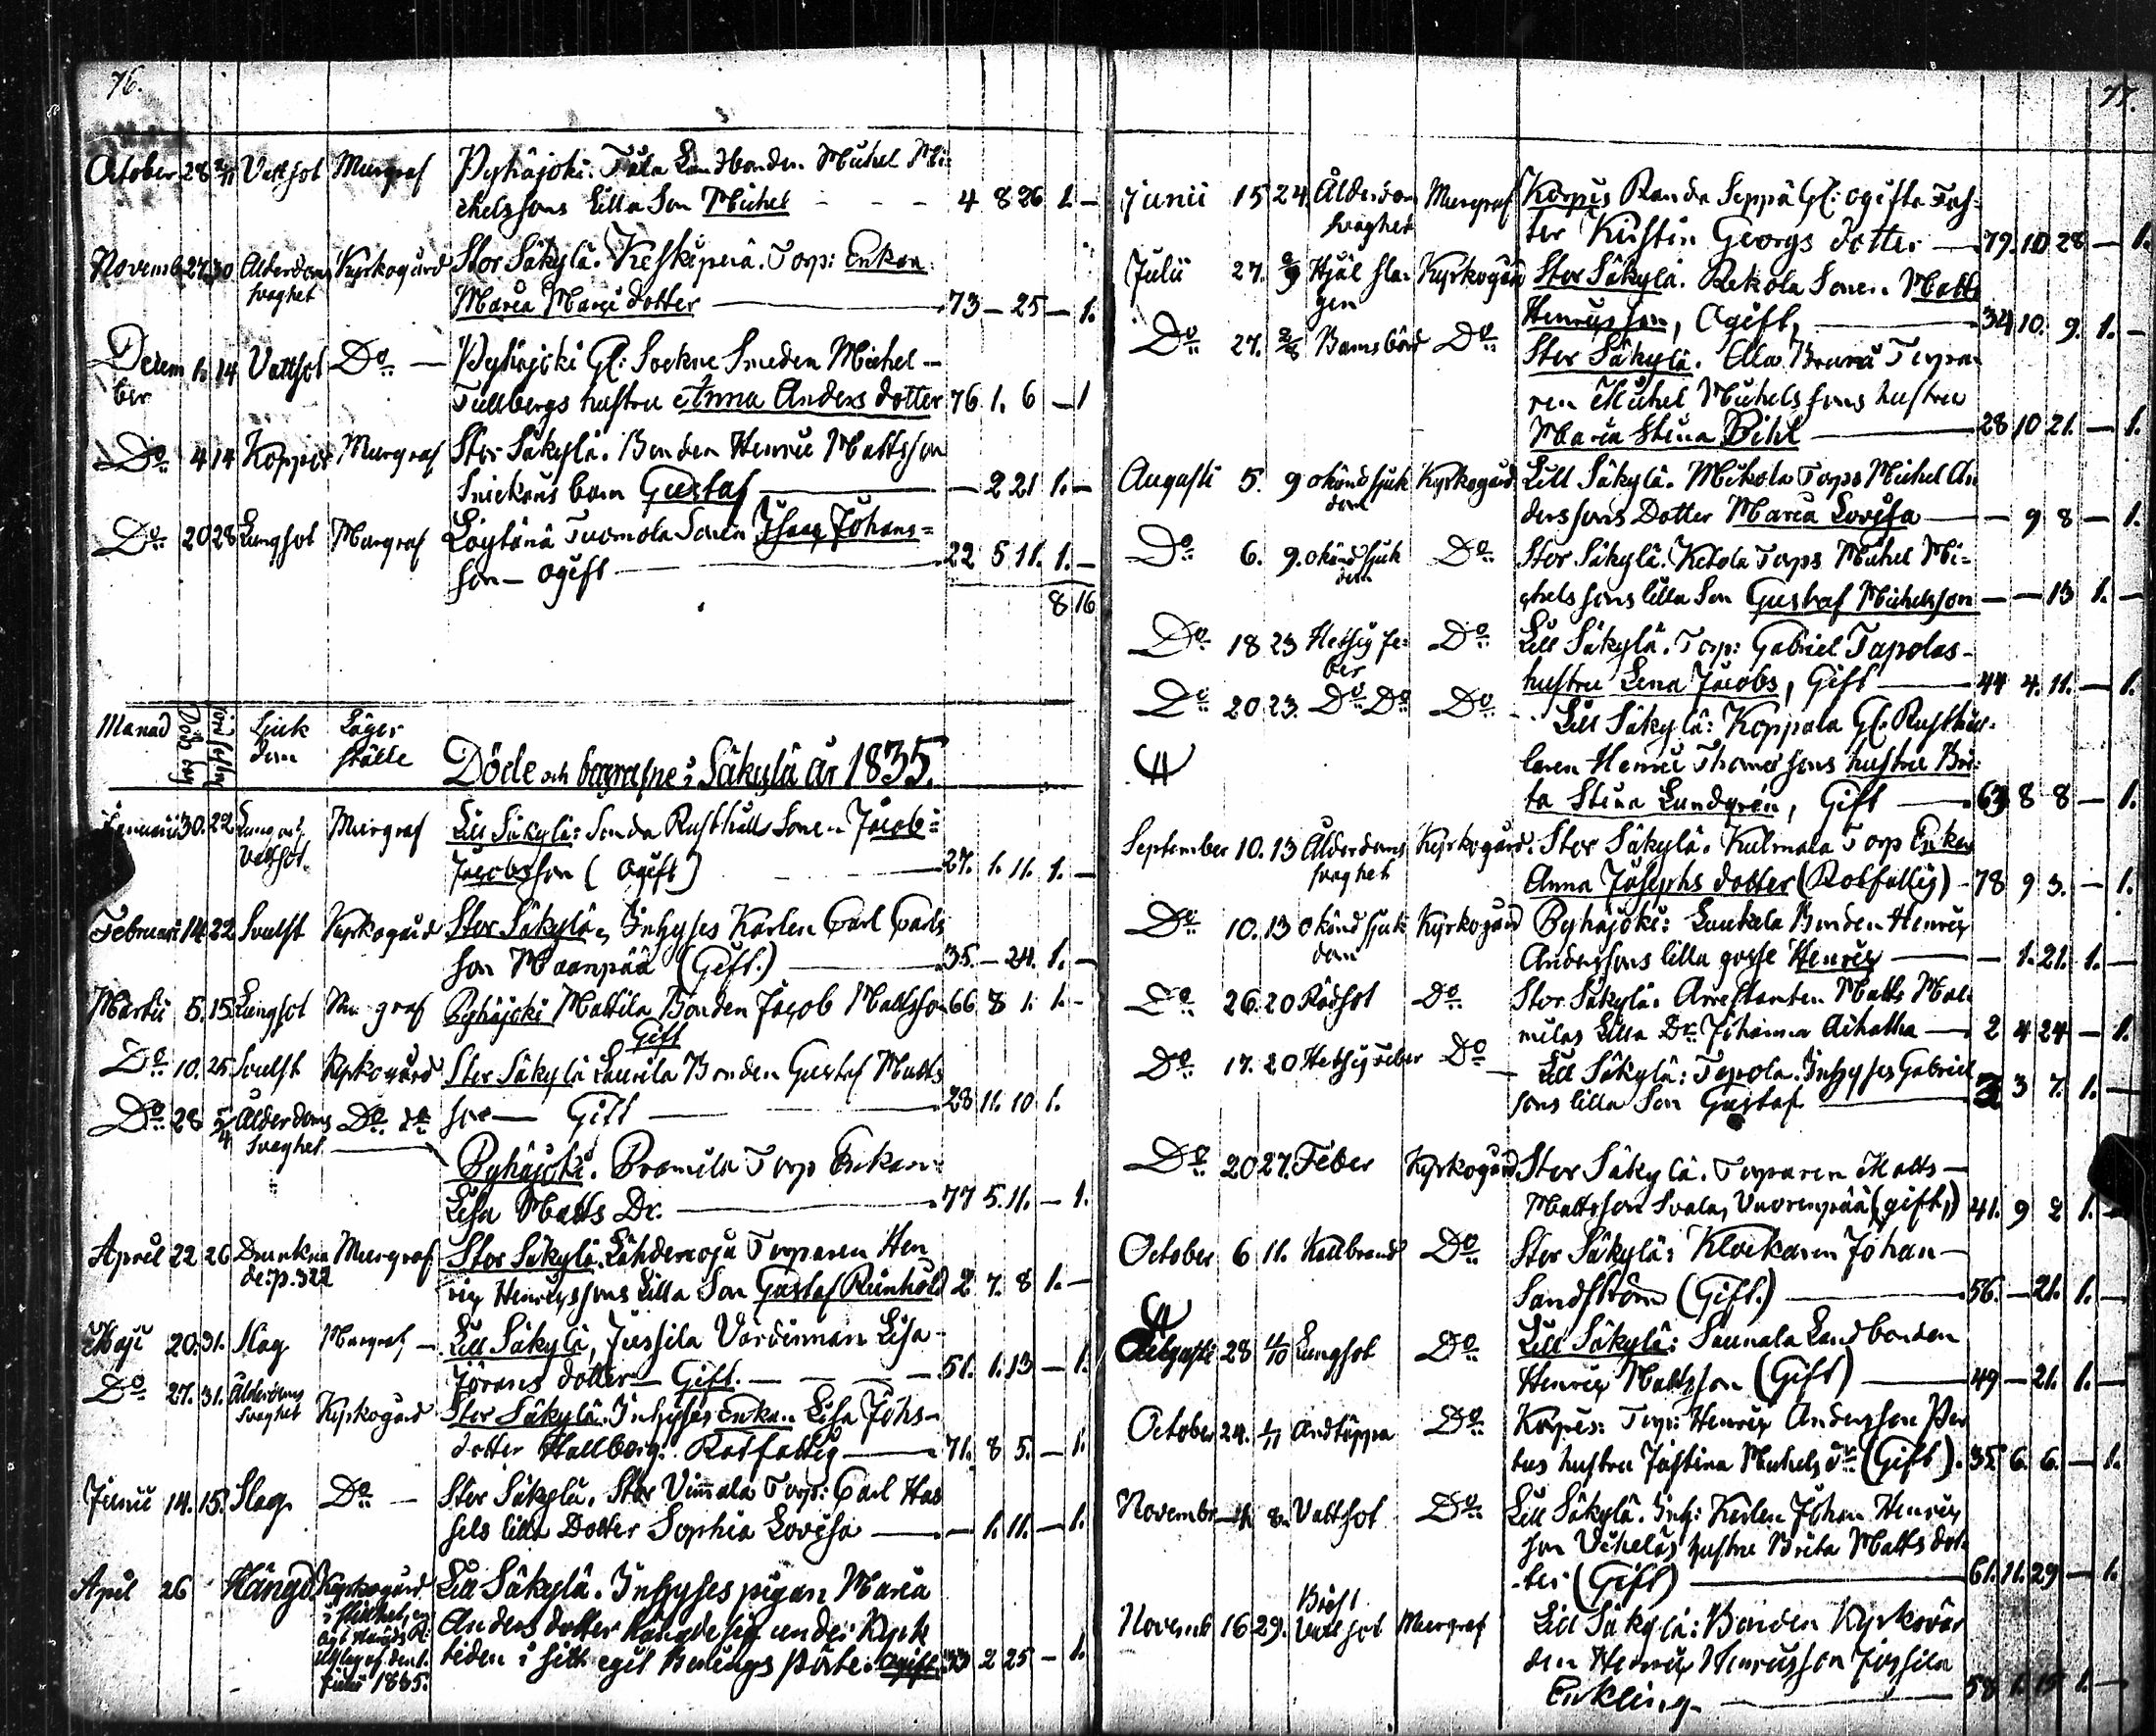 76.
October 28 2/11 Vattsot Murgraf Pyhäjoki. Tåla Landbonden Michel Mi=
chelssons Lilla Son Michel - - - 4 8 26 1. -
Novemb 27 30 Ålderdoms Kyrkogård Stor Säkylä. Keskipeiä. Torp: Enkan
svaghet Maria Marci dotter 73 - 25 - 1.
Decem 1. 14 Vattsot Do - Pyhäjoki Gl: Sockne Smeden Michel -
ber Tullbergs hustru Anna Anders dotter 76. 1. 6 - 1
Do 4 14 Koppor Murgraf Stor Säkylä. Bonden Henric Mattsson
Snickars barn Gustaf - 2 21 1. -
Do 20 28 Lungsot Murgraf Löytänä Tuomola Sonen Isaac Johans=
son - ogift 22 5 11. 1. -
8 16
Månad Död dag Sjuk Läger
dom ställe Döde och begrafne i Säkylä år 1835.
Januarii 30. 22 Lung och Murgraf Lill Säkylä: Rusthålls Sonen Jacob =
Vattsot. Jacobsson (Ogift) 27. 1. 11. 1. -
Februari 14 22 Svulst Kyrkogård Stor Säkylä, Inhyses Karlen Carl Carls
son Maanpää (Gift.) 35. - 24. 1. -
Martii 5. 15 Lungsot Murgraf Pyhäjoki Mattila Bonden Jacob Mattsson 66 8 1. 1. -
Gift
Do 10. 25 Svulst Kyrkogård Stor Säkylä Laurila Bonden Gustaf Matts
son - Gift 28 11. 10 1.
Do 28 5/4 Ålderdoms Do do
Svaghet Pyhäjoki. Pramila Torp Enkan
Lisa Matts Dr. 77 5. 11. - 1.
April 22 26 Drunkna Murgraf Stor Säkylä. Lähdenoja Torparen Hen
de: p. 322 ric Henricssons Lilla Son Gustaf Reinhold 2 7. 8 1. -
Maji 20. 31. Slag Murgraf - Lill Säkylä, Jussila Värdinnan Lisa
Jörans dotter - Gift. 51. 1. 13 - 1.
Do 27. 31. Ålderdoms Kyrkogård Stor Säkylä. Inhyses Enkan Lisa Johs
Svaghet dotter Hallberg. Rotfattig 71. 8 5. - 1.
Junii 14. 15. Slag Do - Stor Säkylä. Stor Vimmala Torp: Carl Has
sels lilla Dotter Sophia Lovisa - 1. 11. - 1.
April 26 Hängd. Kyrkogård Lill Säkylä. Inhyses pigan Maria
i stillhet, Anders dotter hängde sig under Kyrk
tiden i sitt eget Pörte. ogift 33 2 25 - 1.
Julii 1835.
77.
Junii 15 24. Ålderdoms Murgraf Korpis Randa Seppä Gl: ogifta Fas-
svaghet ter Kristin Georgs dotter 79. 10. 28 - 1.
Julii 27. 2/8 Hjälslagen Kyrkogård Stor Säkylä. Rekola Sonen Matts
Henricsson, Ogift, 34 10. 9. 1. -
Do 27. 2/8 Barnsbörd Do Stor Säkylä. Torpa
ren Michel Michelssons hustru
Maria Stina Pihl 28 10 21. - 1.
Augusti 5. 9 okänd sjuk Kyrkogård Lill Säkylä. Mikola Torps Michel An
dom derssons Dotter Maria Lovisa - 9 8 - 1.
Do 6. 9. okänd sjuk Do Stor Säkylä. Ketola Torps Michel Mi=
dom chelssons lilla Son Gustaf Michelsson - - 13 1. -
Do 18 23 Hetsig fe= Do Lill Säkylä. Torp: Gabriel Tapolas
ber hustru Lena Jacobs, Gift 44 4. 11. - 1.
Do 20 23. Do Do Do Lill Säkylä: Koppala Gl: Rusthål-
laren Henric Thomassons hustru Bri=
ta Stina Lundgrén, Gift 63 8 8 - 1.
September 10. 13 Ålderdoms Kyrkogård. Stor Säkylä. Kulmala Torp Enkan
svaghet Anna Josephs dotter (Rotfattig) - 78 9 3. - 1.
Do 10. 13 okänd sjuk Kyrkogård Pyhäjoki: Laukola Bonden Henric
dom Anderssons lilla gosse Henric - 1. 21. 1. -
Do 26. 20 Rödsot Do Stor Säkylä. Arrestanten Matts
Lilla Dr. Johanna Achatha 2 4 24 - 1.
Do 17. 20 Hetsig Feber Do Lill Säkylä: Tapola. Inhyses Gabriel
sons lilla Son Gustaf 3 7. 1. -
Do 20 27. Feber Kyrkogård Stor Säkylä. Torparen Matts
Mattsson Svala, Vuorenpää (gift) 41. 9 2 1. -
October 6 11. Kallbrand Do Stor Säkylä: Klockaren Johan
Sandström (Gift.) 56. - 21. 1. -
28 4/10 Lungsot Do Lill Säkylä: Saunala Landbonden
Henric Mattsson (Gift) 49 - 21. 1. -
October 24. 1/11 Andtäppa Do Korpis: Torp: Henric Andersson Per
tus hustru Justina Michels dr (Gift). 35. 6. 6. - 1.
Novembr 8. Vattsot Do Lill Säkylä. Inh: Karlen Johan Henric
son hustru Brita Matts dot
ter (Gift) 61. 11. 29 - 1.
Novemb 16 29. Bröst Vattsot Murgraf Lill Säkylä: Bonden Kyrkovär
den Henric Henricsson Jussila
Enkling 58 1. -